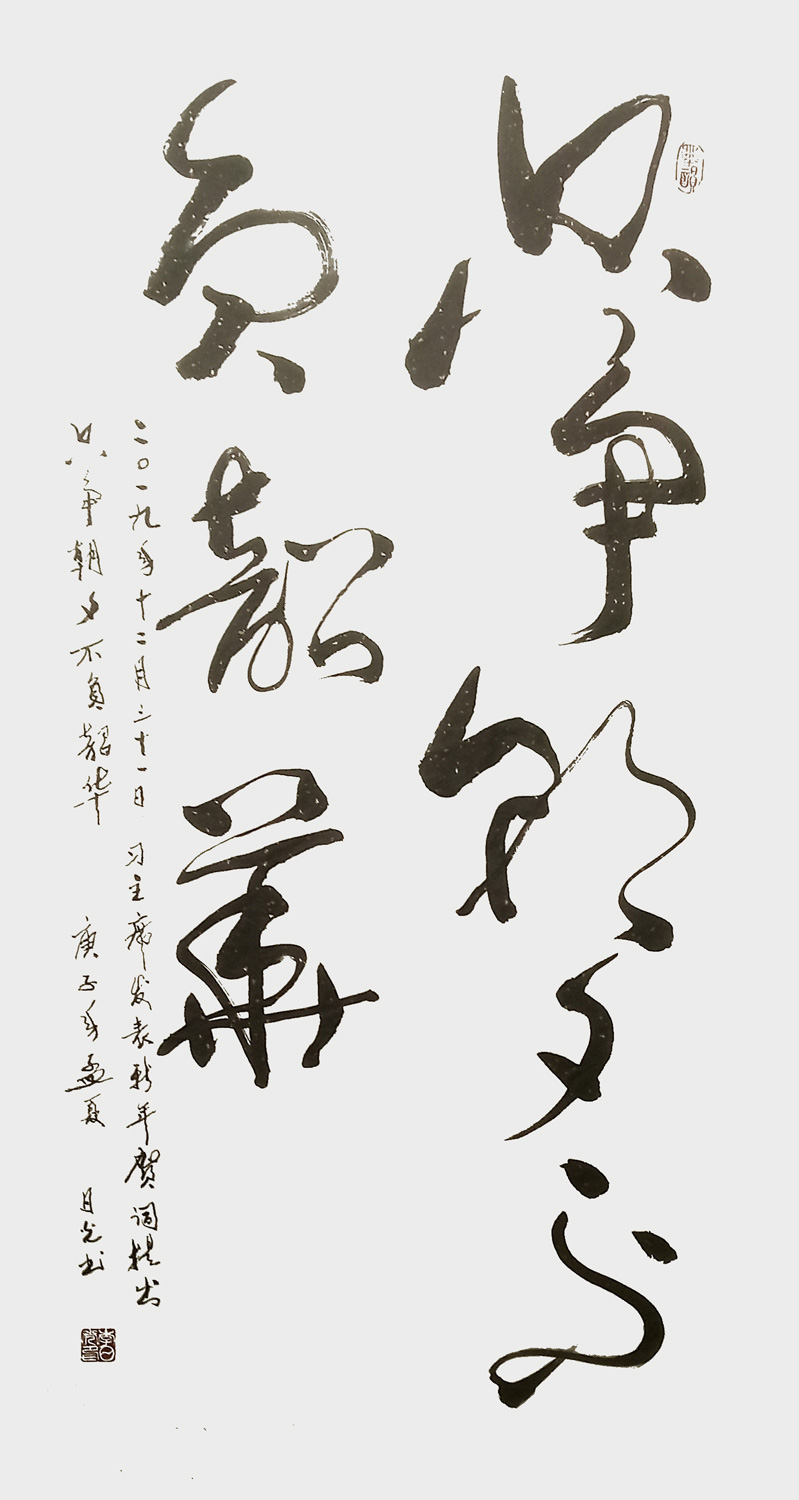 只争朝夕不
负韶華
二〇一九年十二月三十一日 习主席发表新年贺词提出
只争朝夕不负韶华 庚子年孟夏 月光书